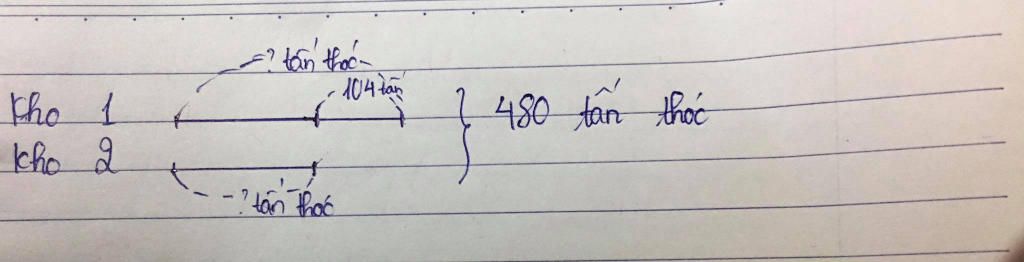 ? tấn thóc
104 tấn
kho 1 480 tấn thóc
kho 2
? tấn thóc